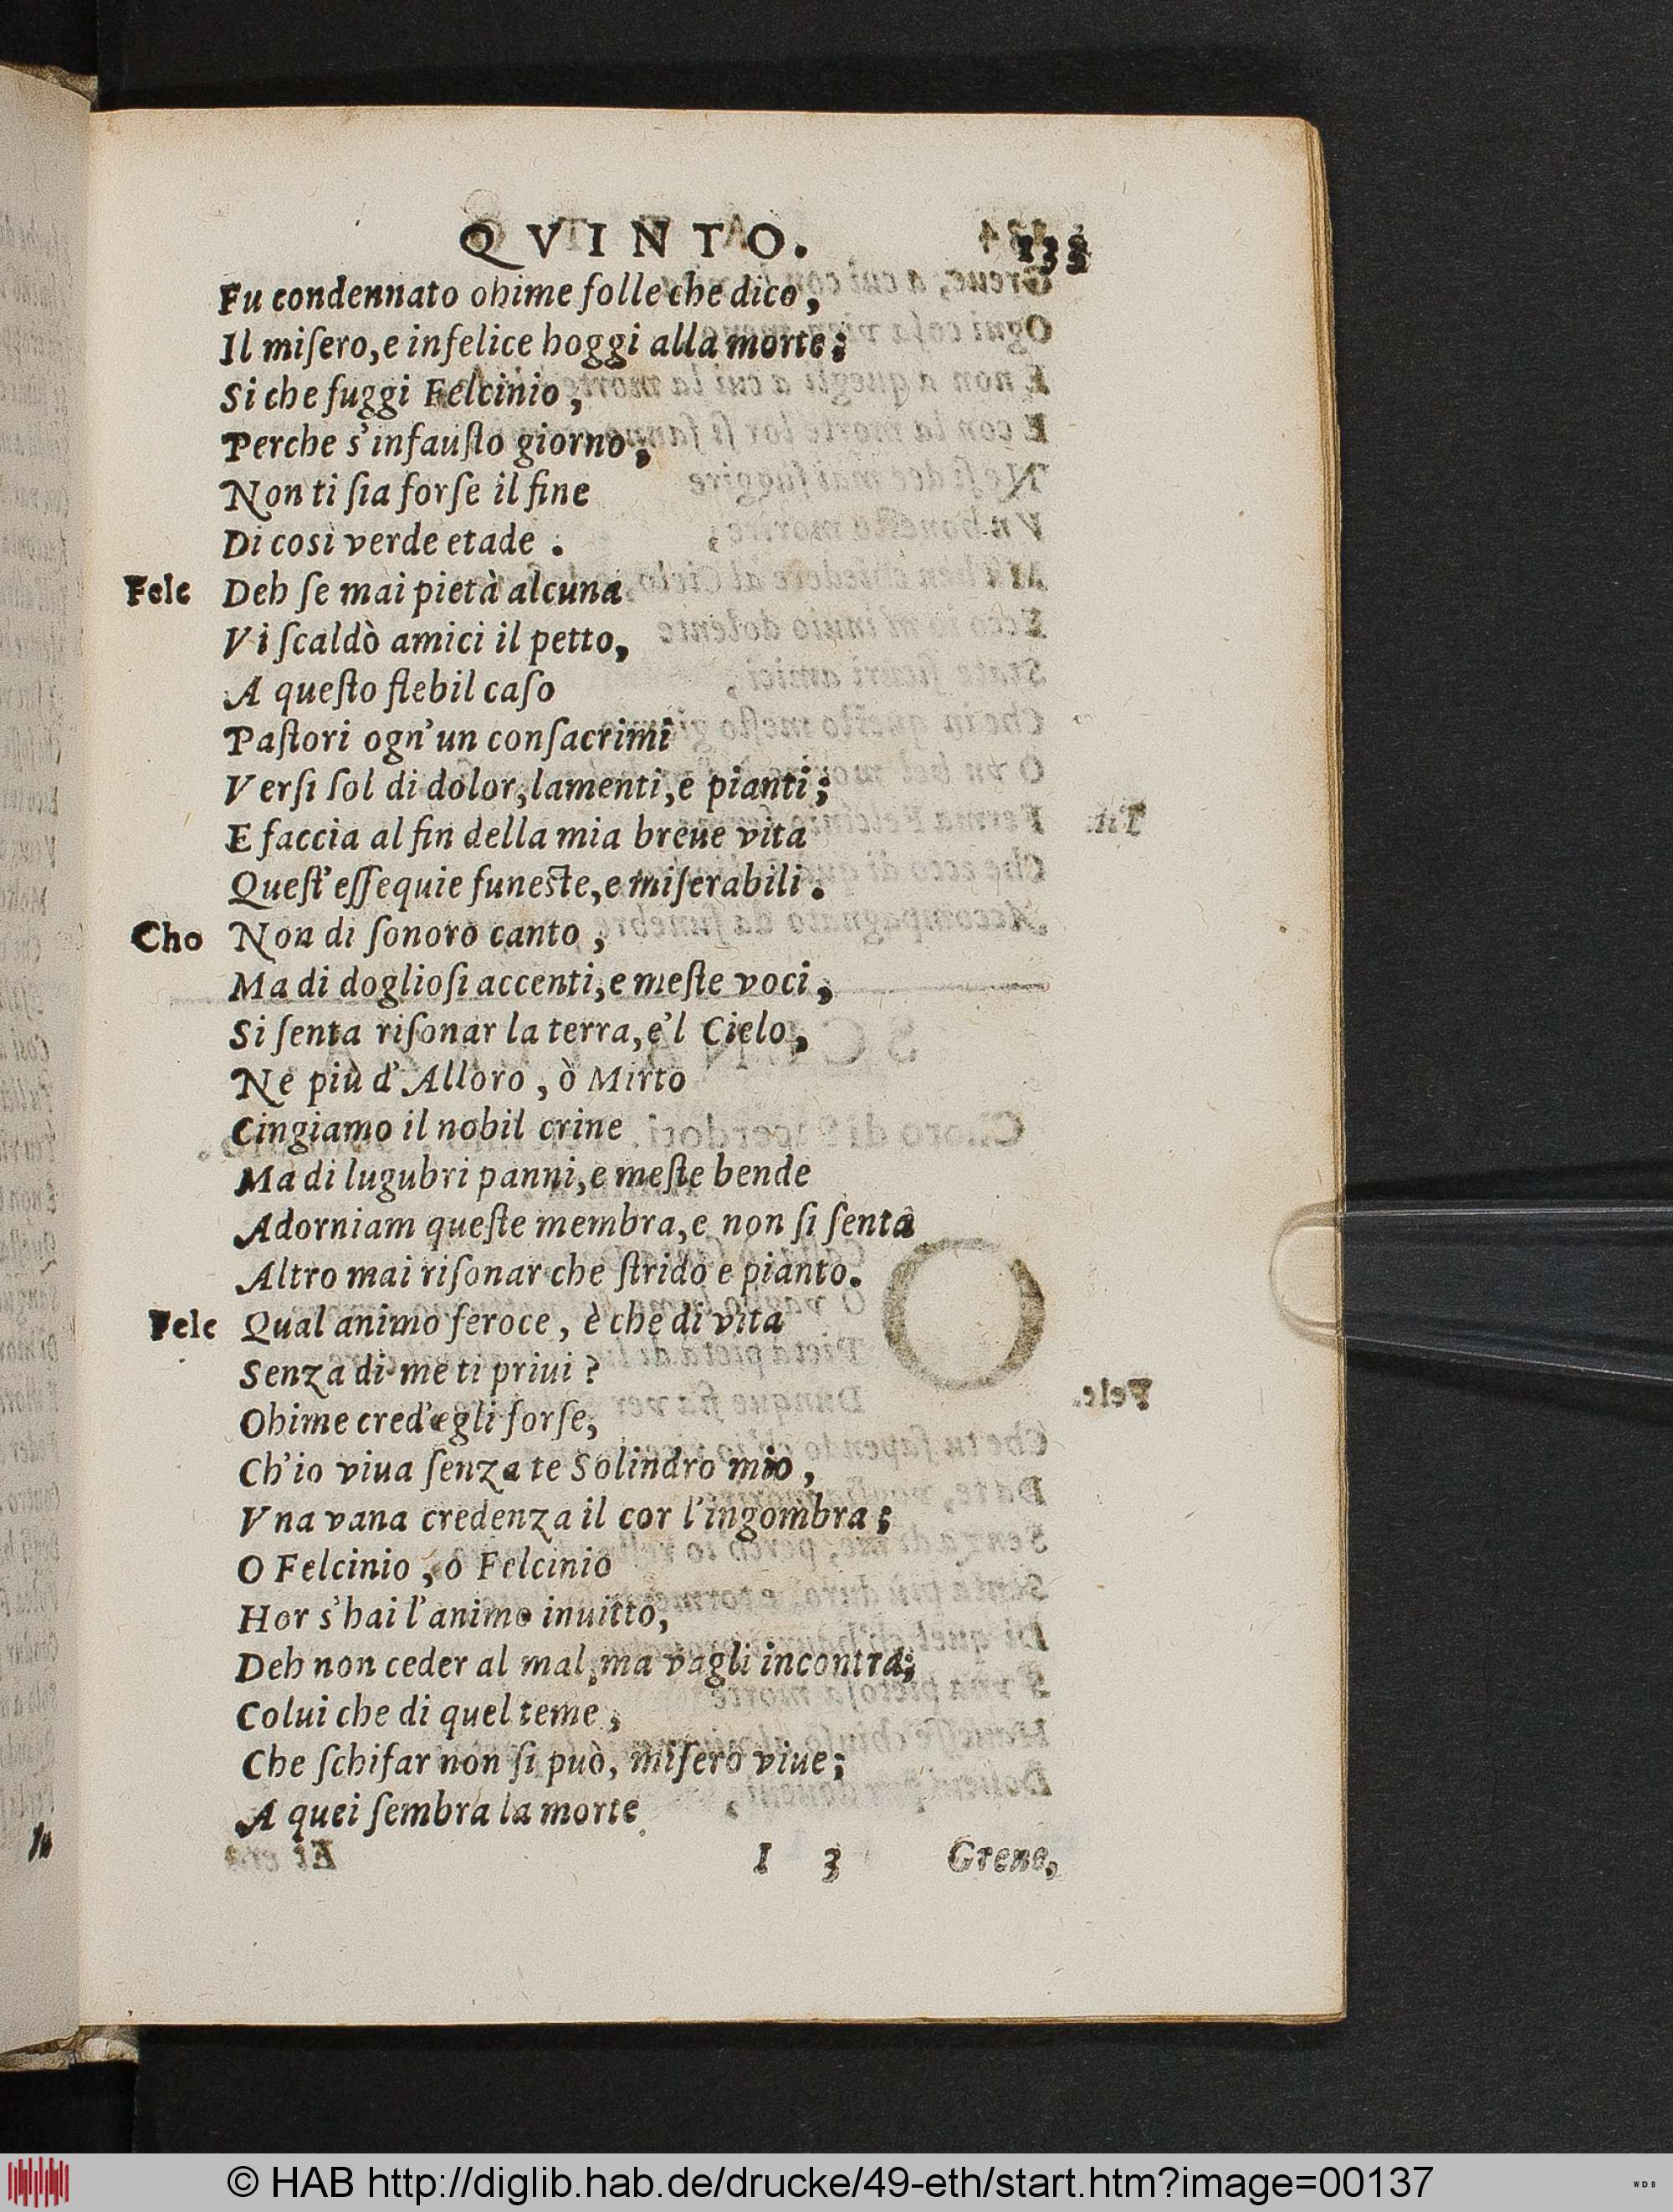 QVINTO. 133
Fu condennato ohime folle che dico,
Il miſero, e infelice hoggi alla morte;
Si che fuggi Felcinio,
Perche s'infauſto giorno,
Non ti ſia forſe il fine
Di cosi verde etade.
Fele Deh ſe mai pietà alcuna
Vi ſcaldò amici il petto,
A queſto flebil caſo
Paſtori ogn'un conſacrimi
Verſi ſol di dolor, lamenti, e pianti;
E faccia al fin della mia breue vita
Queſt'eſſequie funeſte, e miſerabili.
Cho Non di ſonoro canto,
Ma di doglioſi accenti, e meſte voci,
Si ſenta riſonar la terra, e'l Cielo,
Ne più d'Alloro, ò Mirto
Cingiamo il nobil crine
Ma di lugubri panni, e meſte bende
Adorniam queſte membra, e non ſi ſenta
Altro mai riſonar che ſtrido e pianto.
Fele Qual animo feroce, è che di vita
Senza di me ti priui?
Ohime cred'egli forſe,
Ch'io viua ſenza te Solindro mio,
Vna vana credenza il cor l'ingombra;
O Felcinio, o Felcinio
Hor s'hai l'animo inuitto,
Deh non ceder al mal, ma vagli incontra;
Colui che di quel teme,
Che ſchifar non ſi può, miſero viue;
A quei ſembra la morte
I 3 Greue,
© HAB http://diglib.hab.de/drucke/49-eth/start.htm?image=00137
WDB